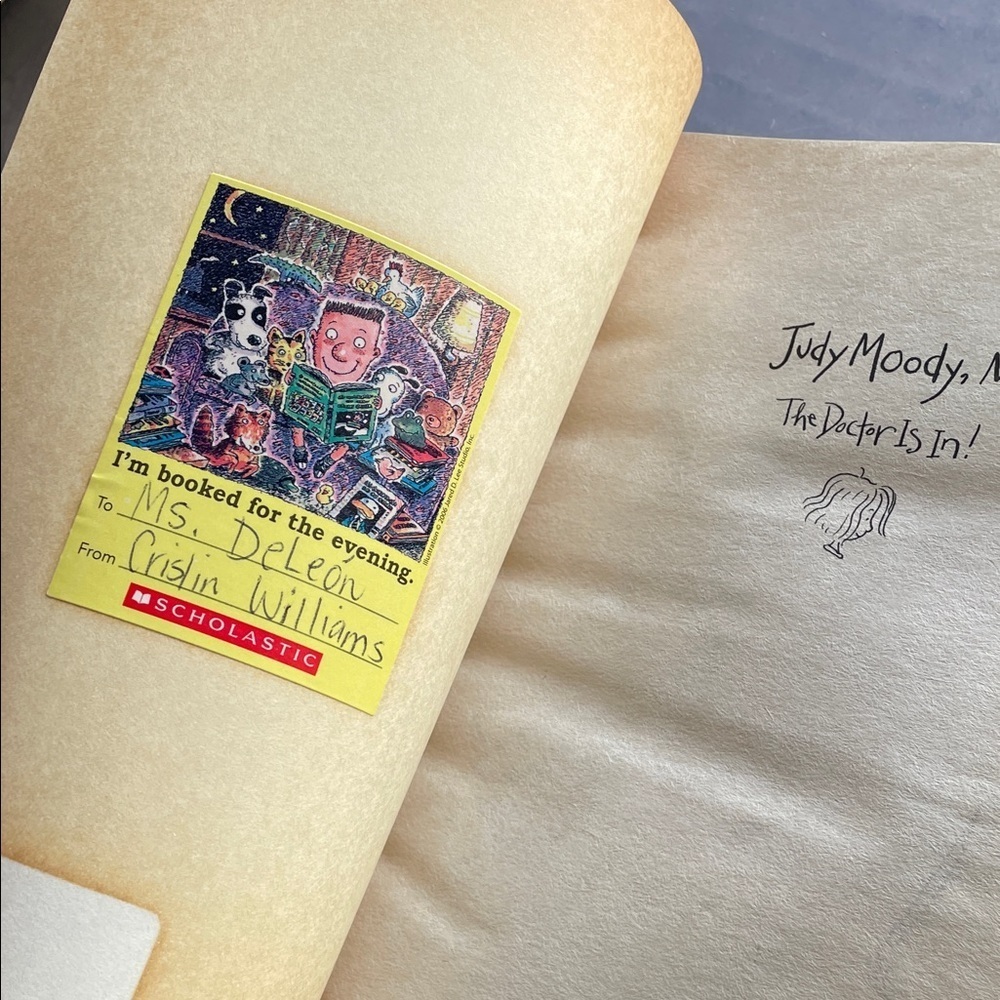 I'm booked for the evening.
To Ms. DeLeon
From Cristin Williams
SCHOLASTIC
Illustration © 2006 Jared D. Lee Studio, Inc.
Judy Moody, M
The Doctor Is In!